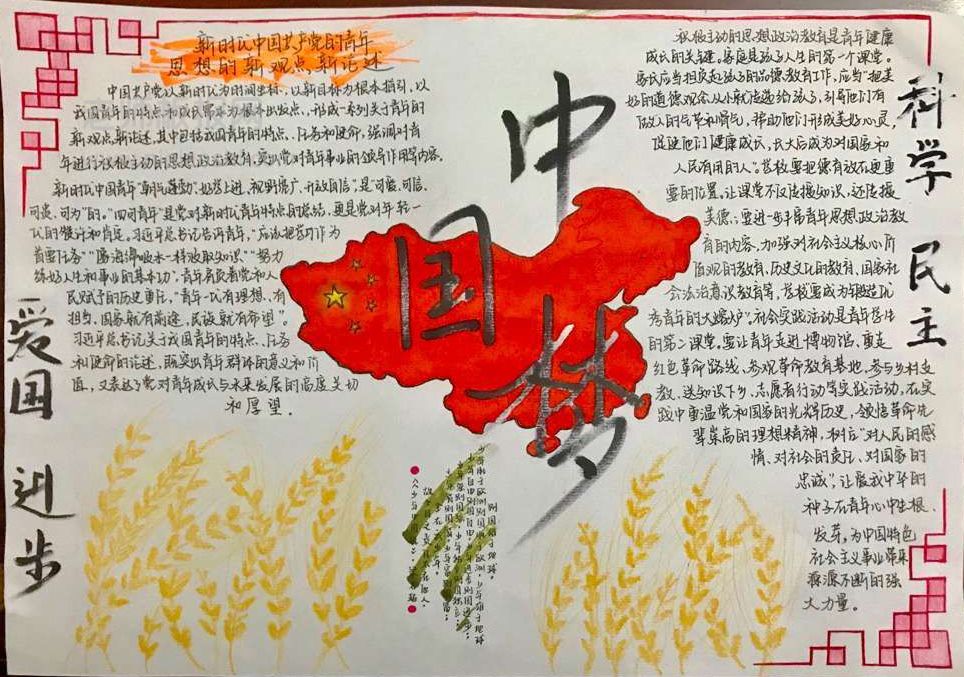 新时代中国共产党的青年
思想的新观点、新论述
中国共产党以新时代为时间坐标，以新目标为根本指引，以
我国青年的特点和成长需求为根本出发点，形成一系列关于青年的
新观点新论述，其中包括我国青年的特点、任务和使命，强调对青
年进行积极主动的思想政治教育，突出党对青年事业的领导作用等内容。
新时代中国青年“朝气蓬勃、好学上进、视野宽广、开放自信”是“可爱、可信、
可贵、可为”的。“四可青年”是党对新时代青年特点的总结，更是党对年轻一
代的赞许和肯定。习近平总书记告诉青年，“应该把学习作为
首要任务”“像海绵吸水一样汲取知识”“努力
练好人生和事业的基本功”，青年肩负着党和人
民赋予的历史重任，“青年一代有理想、有
担当，国家就有前途，民族就有希望”。
习近平总书记关于我国青年的特点、任务
和使命的论述，既突出青年群体的意义和价
值，又表达了党对青年成长与未来发展的高度关切
和厚望．
中
国
梦
积极主动的思想政治教育是青年健康
成长的关键。家庭是孩子人生的第一个课堂。
家长应当担负起孩子的品德教育工作，应当“把美
好的道德观念从小就传递给孩子，引导他们有
做人的气节和骨气，帮助他们形成美好心灵，
促使他们健康成长，长大后成为对国家和
人民有用的人”。学校要把德育放在更重
要的位置。让课堂不仅传播知识，还传授
美德；要进一步丰富青年思想政治教
育的内容，加强对社会主义核心价
值观的教育，历史文化的教育，国家社
会法治意识教育等，学校要成为锻造优
秀青年的大熔炉”。社会实践活动是青年学生
的第二课堂。要让青年走进博物馆、重走
红色革命路线、参观革命教育基地、参与乡村支
教、送知识下乡，志愿者行动等实践活动，在实
践中重温党和国家的光辉历史，领悟革命先
辈崇高的理想精神，树立“对人民的感
情、对社会的责任、对国家的
忠诚”，让爱我中华的
种子在青年心中生根、
发芽，为中国特色
社会主义事业带来
源源不断的强
大力量。
科学 民主
爱国 进步